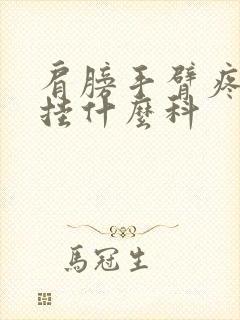 肩膀手臂疼
挂什麽科
馬冠生